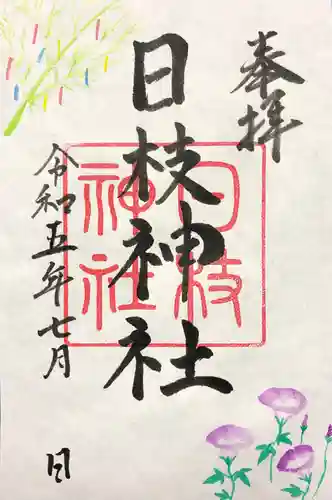 奉拝
日枝神社
日枝
神社
令和五年七月
日